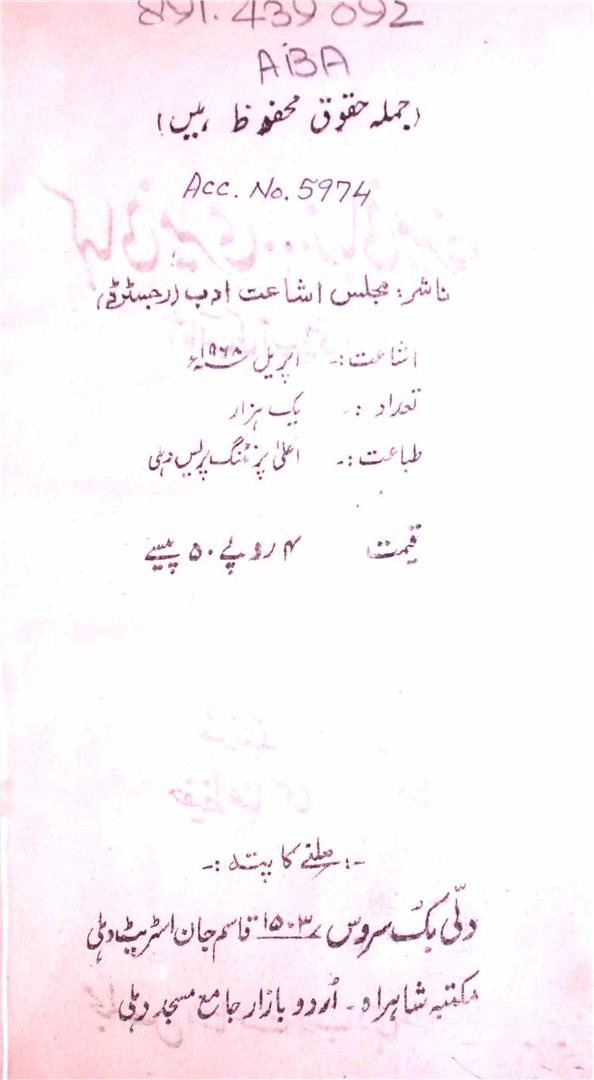 891.439092
ABA
(جملہ حقوق محفوظ ہیں)
Acc. No. 5974
ناشر: مجلس اشاعت ادب (رجسٹرڈ)
اشاعت :- اپریل ۱۹۶۸ء
تعداد :- یک ہزار
طباعت :- اعلیٰ پرنٹنگ پریس دہلی
قیمت ۴ روپے ۵۰ پیسے
-: ملنے کا پتہ :-
دلّی بک سروس ۱۵۰۳ قاسم جان اسٹریٹ دہلی
مکتبہ شاہراہ - اُردو بازار جامع مسجد دہلی